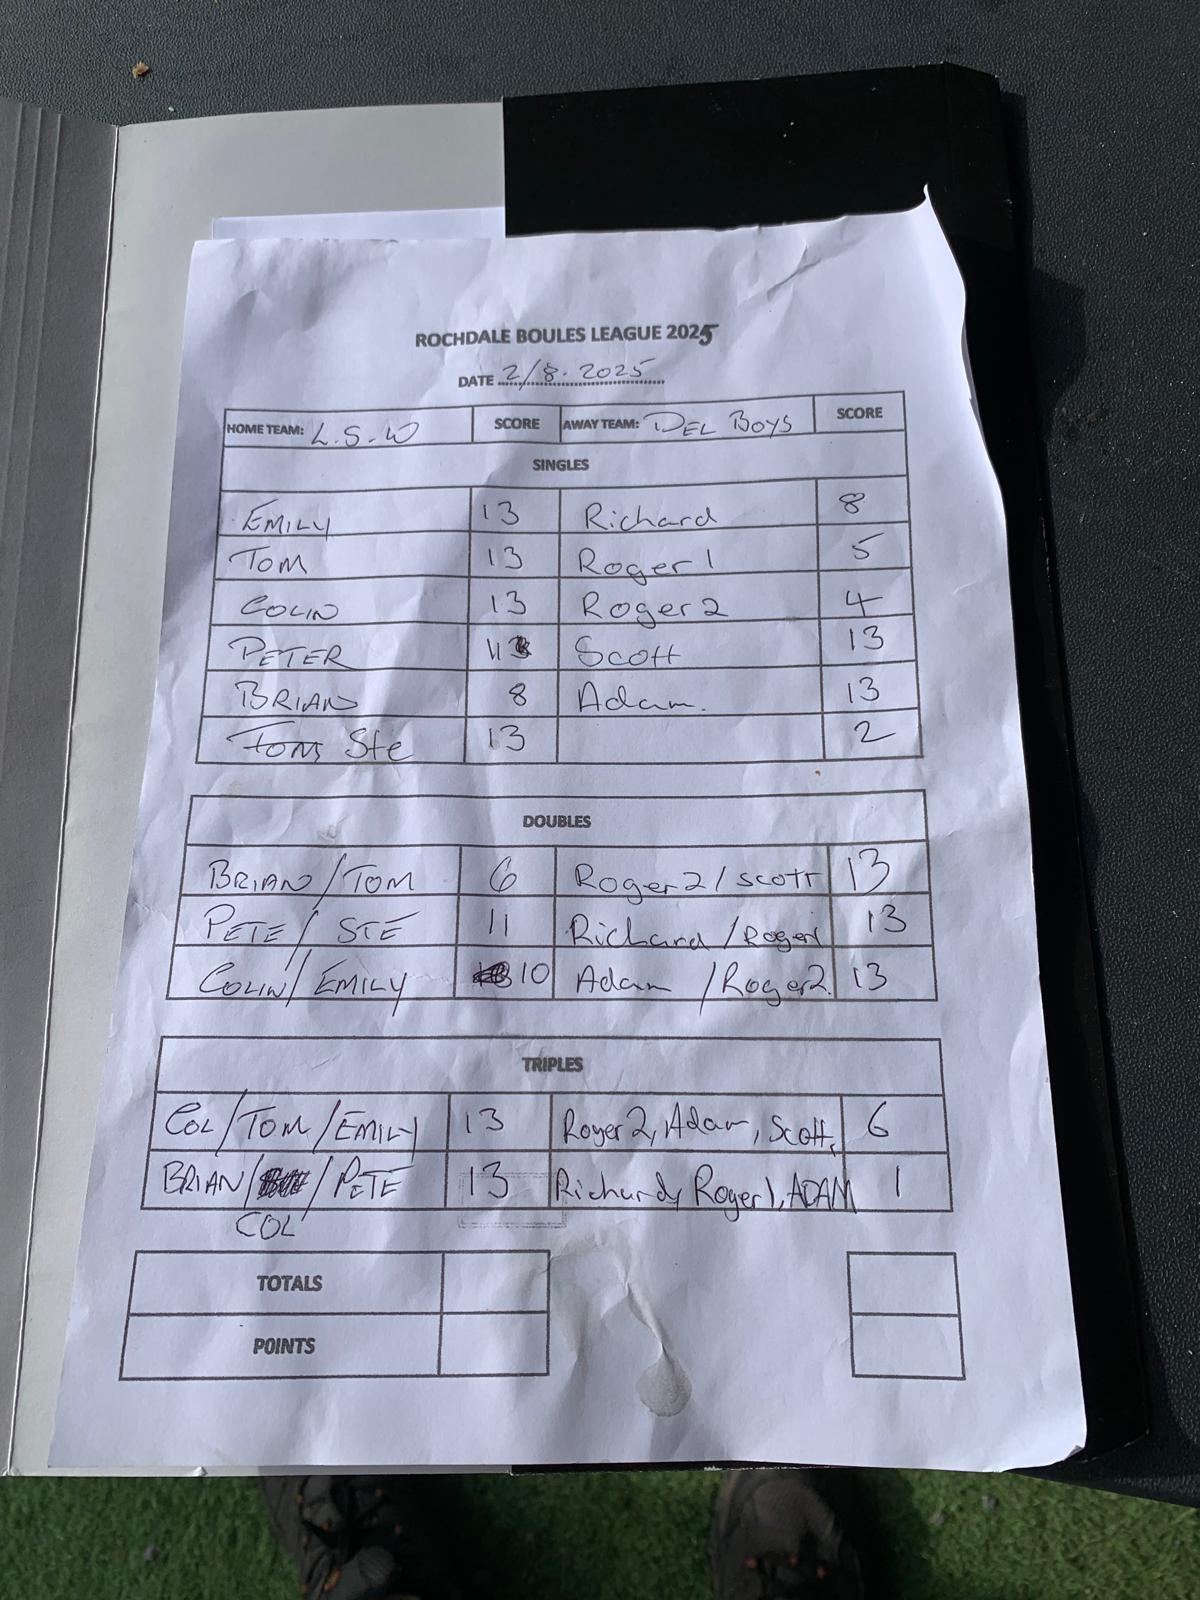 ROCHDALE BOULES LEAGUE 2025
DATE 2/8.2025
HOME TEAM: L.S.W SCORE AWAY TEAM: DEL BOYS SCORE
SINGLES
EMILY 13 Richard 8
TOM 13 Roger 1 5
COLIN 13 Roger 2 4
PETER 11 Scott 13
BRIAN 8 Adam. 13
TOM Ste 13 2
DOUBLES
BRIAN/TOM 6 Roger 2/scott 13
PETE/STE 11 Richard/Roger1 13
COLIN/EMILY 10 Adam/Roger2. 13
TRIPLES
COL/TOM/EMILY 13 Roger 2, Adam, Scott, 6
BRIAN/ /PETE 13 Richard, Roger 1, ADAM 1
COL
TOTALS
POINTS